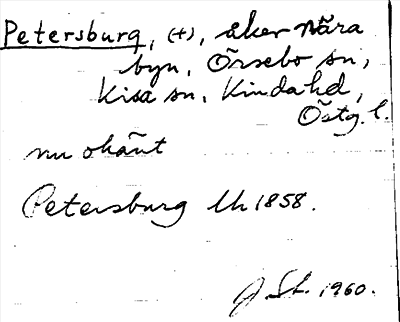 Petersburg, (+), åker nära
byn, Örsebo sn,
Kisa sn, Kinda hd,
Östg. l.
nu okänt
Petersburg Uh 1858.
J. St. 1960.